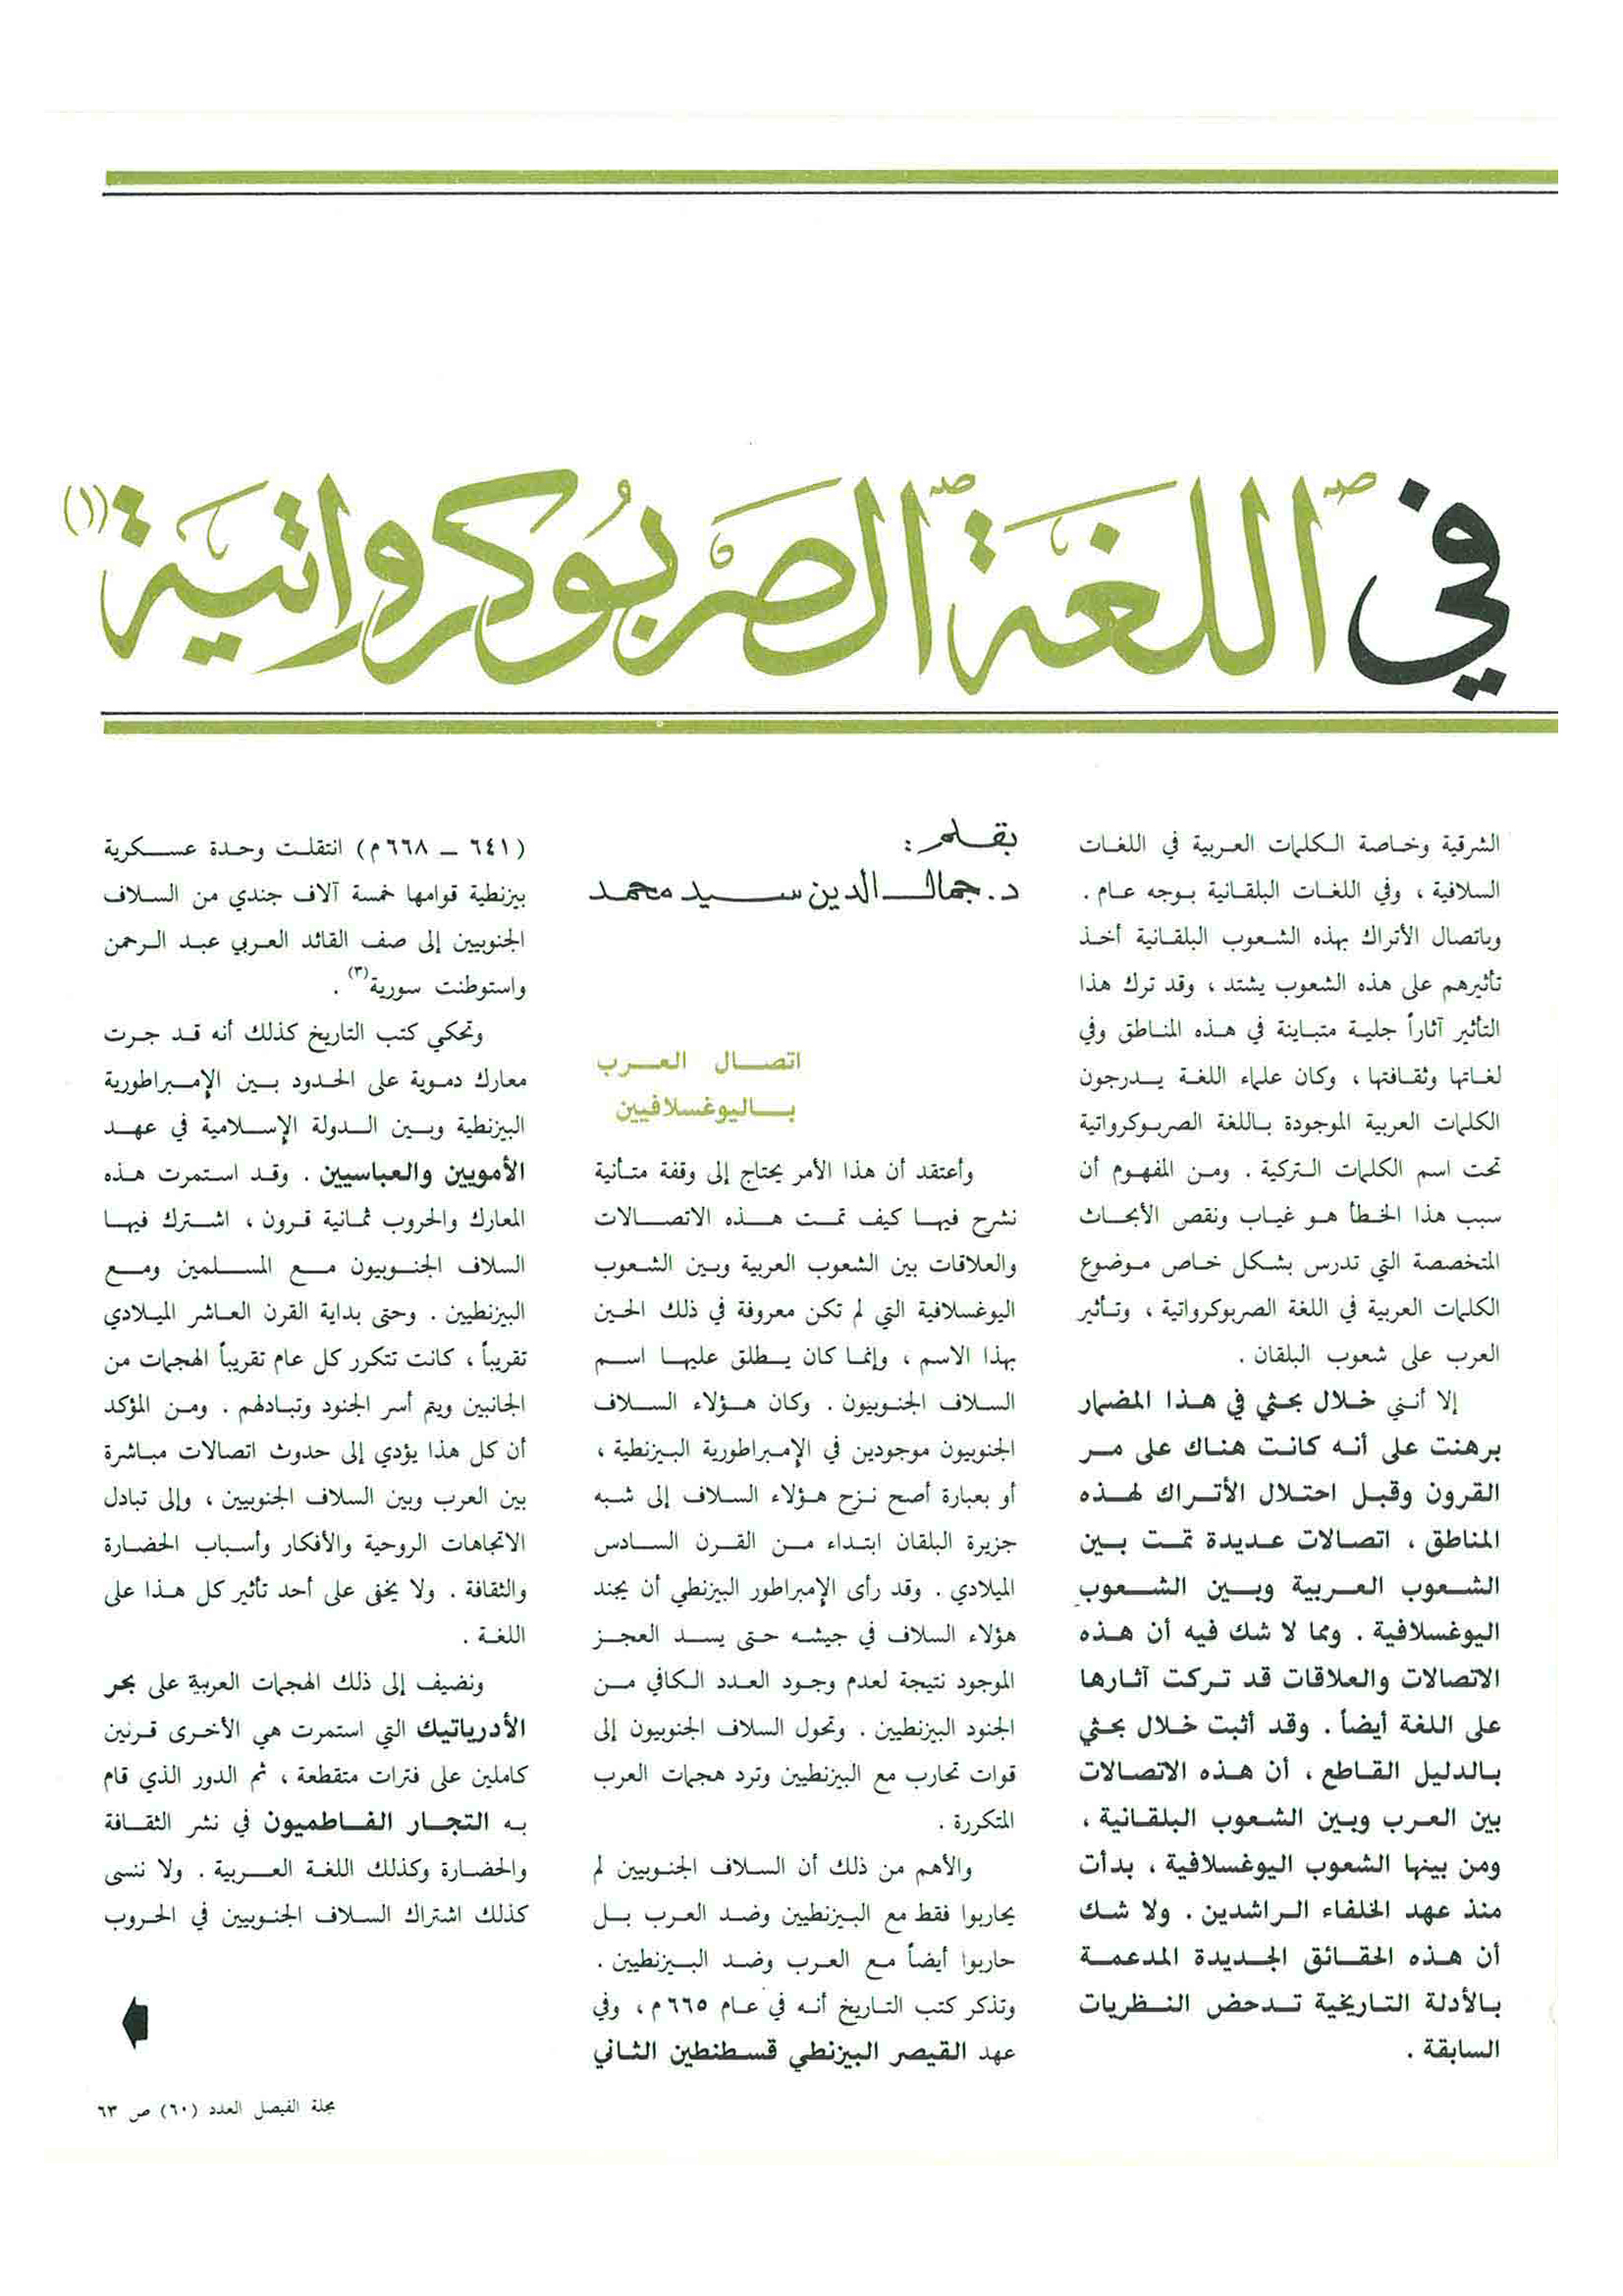 في اللغة الصربوكرواتية (١)
الشرقية وخاصة الكلمات العربية في اللغات
السلافية ، وفي اللغات البلقانية بوجه عام .
وباتصال الأتراك بهذه الشعوب البلقانية أخذ
تأثيرهم على هذه الشعوب يشتد ، وقد ترك هذا
التأثير آثاراً جلية متباينة في هذه المناطق وفي
لغاتها وثقافتها ، وكان علماء اللغة يدرجون
الكلمات العربية الموجودة باللغة الصربوكرواتية
تحت اسم الكلمات التركية . ومن المفهوم أن
سبب هذا الخطأ هو غياب ونقص الأبحاث
المتخصصة التي تدرس بشكل خاص موضوع
الكلمات العربية في اللغة الصربوكرواتية ، وتأثير
العرب على شعوب البلقان .
إلا أنني خلال بحثي في هذا المضمار
برهنت على أنه كانت هناك على مر
القرون وقبل احتلال الأتراك لهذه
المناطق ، اتصالات عديدة تمت بين
الشعوب العربية وبين الشعوب
اليوغسلافية . ومما لا شك فيه أن هذه
الاتصالات والعلاقات قد تركت آثارها
على اللغة أيضاً . وقد أثبت خلال بحثي
بالدليل القاطع ، أن هذه الاتصالات
بين العرب وبين الشعوب البلقانية ،
ومن بينها الشعوب اليوغسلافية ، بدأت
منذ عهد الخلفاء الراشدين . ولا شك
أن هذه الحقائق الجديدة المدعمة
بالأدلة التاريخية تدحض النظريات
السابقة .
بقلم :
د. جمال الدين سيد محمد
اتصال العرب
باليوغسلافيين
وأعتقد أن هذا الأمر يحتاج إلى وقفة متأنية
نشرح فيها كيف تمت هذه الاتصالات
والعلاقات بين الشعوب العربية وبين الشعوب
اليوغسلافية التي لم تكن معروفة في ذلك الحين
بهذا الاسم ، وإنما كان يطلق عليها اسم
السلاف الجنوبيون . وكان هؤلاء السلاف
الجنوبيون موجودين في الإمبراطورية البيزنطية ،
أو بعبارة أصح نزح هؤلاء السلاف إلى شبه
جزيرة البلقان ابتداء من القرن السادس
الميلادي . وقد رأى الإمبراطور البيزنطي أن يجند
هؤلاء السلاف في جيشه حتى يسد العجز
الموجود نتيجة لعدم وجود العدد الكافي من
الجنود البيزنطيين . وتحول السلاف الجنوبيون إلى
قوات تحارب مع البيزنطيين وترد هجمات العرب
المتكررة .
والأهم من ذلك أن السلاف الجنوبيين لم
يحاربوا فقط مع البيزنطيين وضد العرب بل
حاربوا أيضاً مع العرب وضد البيزنطيين .
وتذكر كتب التاريخ أنه في عام ٦٦٥ م ، وفي
عهد القيصر البيزنطي قسطنطين الثاني
(٦٤١ – ٦٦٨ م) انتقلت وحدة عسكرية
بيزنطية قوامها خمسة آلاف جندي من السلاف
الجنوبيين إلى صف القائد العربي عبد الرحمن
واستوطنت سورية(٣) .
وتحكي كتب التاريخ كذلك أنه قد جرت
معارك دموية على الحدود بين الإمبراطورية
البيزنطية وبين الدولة الإسلامية في عهد
الأمويين والعباسيين . وقد استمرت هذه
المعارك والحروب ثمانية قرون ، اشترك فيها
السلاف الجنوبيون مع المسلمين ومع
البيزنطيين . وحتى بداية القرن العاشر الميلادي
تقريباً ، كانت تتكرر كل عام تقريباً الهجمات من
الجانبين ويتم أسر الجنود وتبادلهم . ومن المؤكد
أن كل هذا يؤدي إلى حدوث اتصالات مباشرة
بين العرب وبين السلاف الجنوبيين ، وإلى تبادل
الاتجاهات الروحية والأفكار وأسباب الحضارة
والثقافة . ولا يخفى على أحد تأثير كل هذا على
اللغة .
ونضيف إلى ذلك الهجمات العربية على بحر
الأدرياتيك التي استمرت هي الأخرى قرنين
كاملين على فترات متقطعة ، ثم الدور الذي قام
به التجار الفاطميون في نشر الثقافة
والحضارة وكذلك اللغة العربية . ولا ننسى
كذلك اشتراك السلاف الجنوبيين في الحروب
مجلة الفيصل العدد (٦٠) ص ٦٣